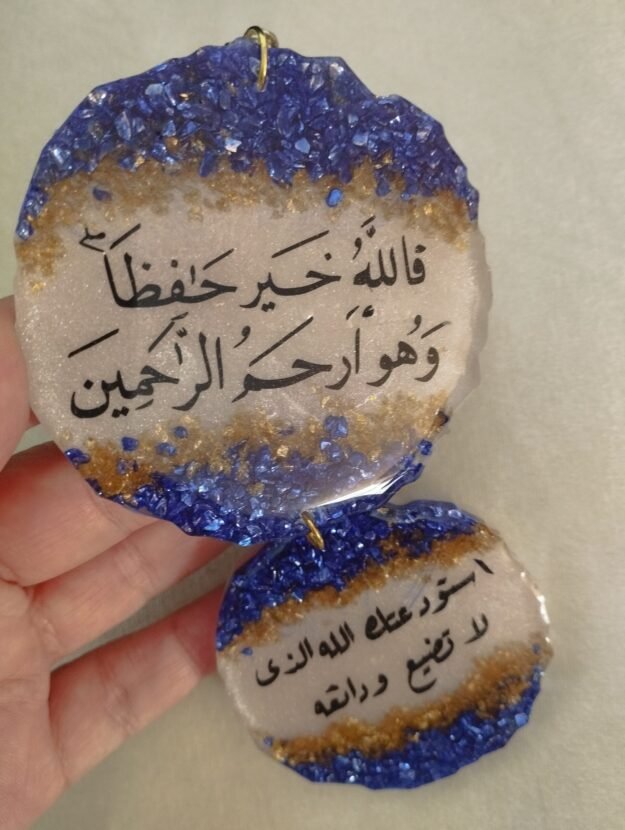 فَاللَّهُ خَيْر حَٰفِظاً ۖ
وَهُو أَرحَمُ الرَّاحِمِينَ
استودعتك الله الذى
لا تضيع ودائعه